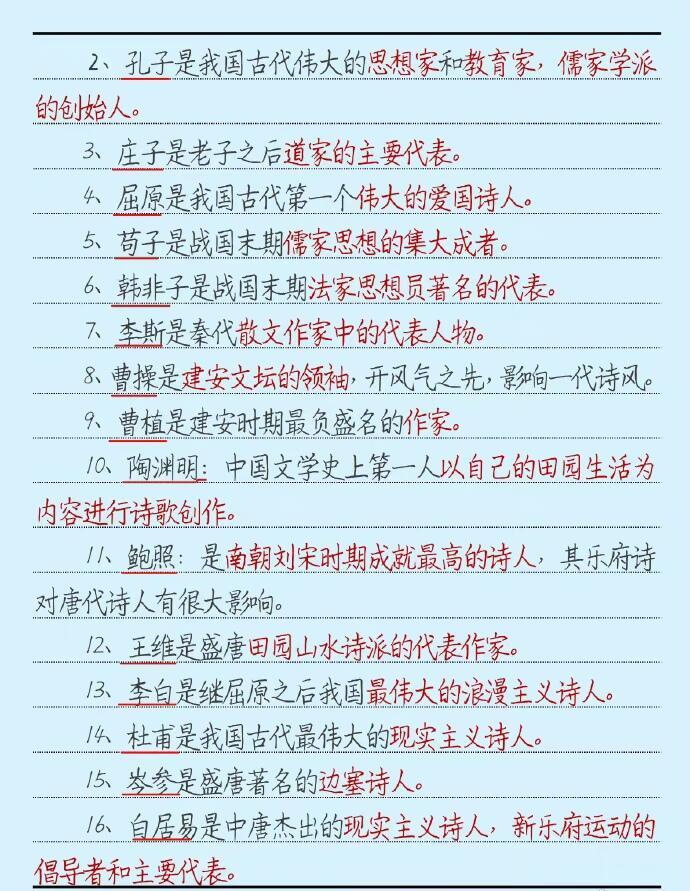 2、孔子是我国古代伟大的思想家和教育家，儒家学派
的创始人。
3、庄子是老子之后道家的主要代表。
4、屈原是我国古代第一个伟大的爱国诗人。
5、荀子是战国末期儒家思想的集大成者。
6、韩非子是战国末期法家思想员著名的代表。
7、李斯是秦代散文作家中的代表人物。
8、曹操是建安文坛的领袖，开风气之先，影响一代诗风。
9、曹植是建安时期最负盛名的作家。
10、陶渊明：中国文学史上第一人以自己的田园生活为
内容进行诗歌创作。
11、鲍照：是南朝刘宋时期成就最高的诗人，其乐府诗
对唐代诗人有很大影响。
12、王维是盛唐田园山水诗派的代表作家。
13、李白是继屈原之后我国最伟大的浪漫主义诗人。
14、杜甫是我国古代最伟大的现实主义诗人。
15、岑参是盛唐著名的边塞诗人。
16、白居易是中唐杰出的现实主义诗人，新乐府运动的
倡导者和主要代表。